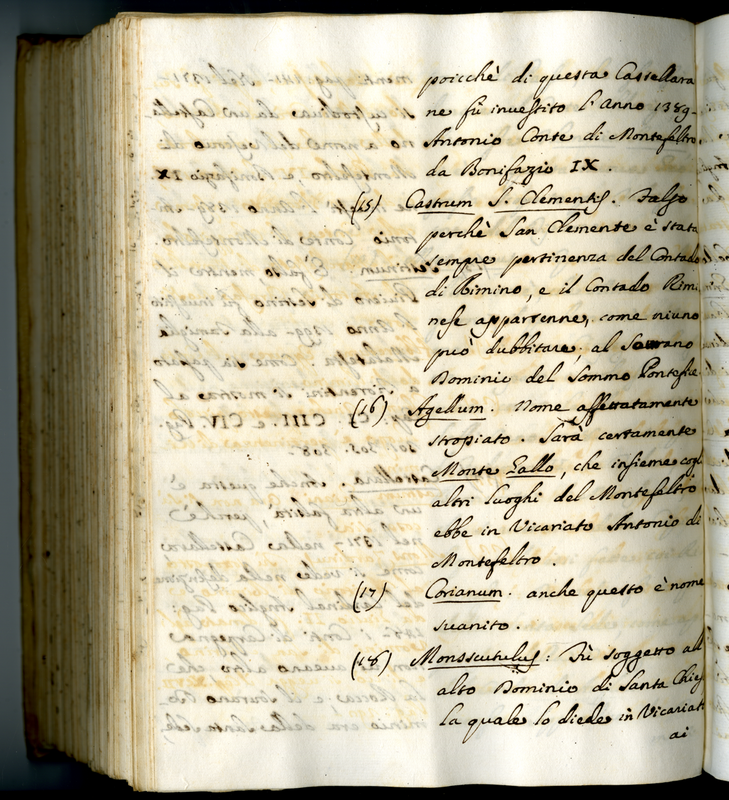 poicchè di questa Castellara
ne fù investito l'anno 1389
Antonio Conte di Montefeltro
da Bonifazio IX.
(15) Castrum S. Clementis. Falso
perchè San Clemente è stata
sempre pertinenza del Contado
di Rimino, e il Contado Rimi
nese appartenne, come niuno
può dubbitare, al Sovrano
Dominio del Sommo Pontefice
(16) Agellum. Nome affettatamente
stropiato. Sarà certamente
Monte Gallo, che insieme cogl
altri luoghi del Montefeltro
ebbe in Vicariato Antonio di
Montefeltro.
(17) Corianum. anche questo è nome
suanito.
(18) Monsscutulus: Fù soggetto all
alto Dominio di Santa Chiesa
la quale lo diede in Vicariato
ai